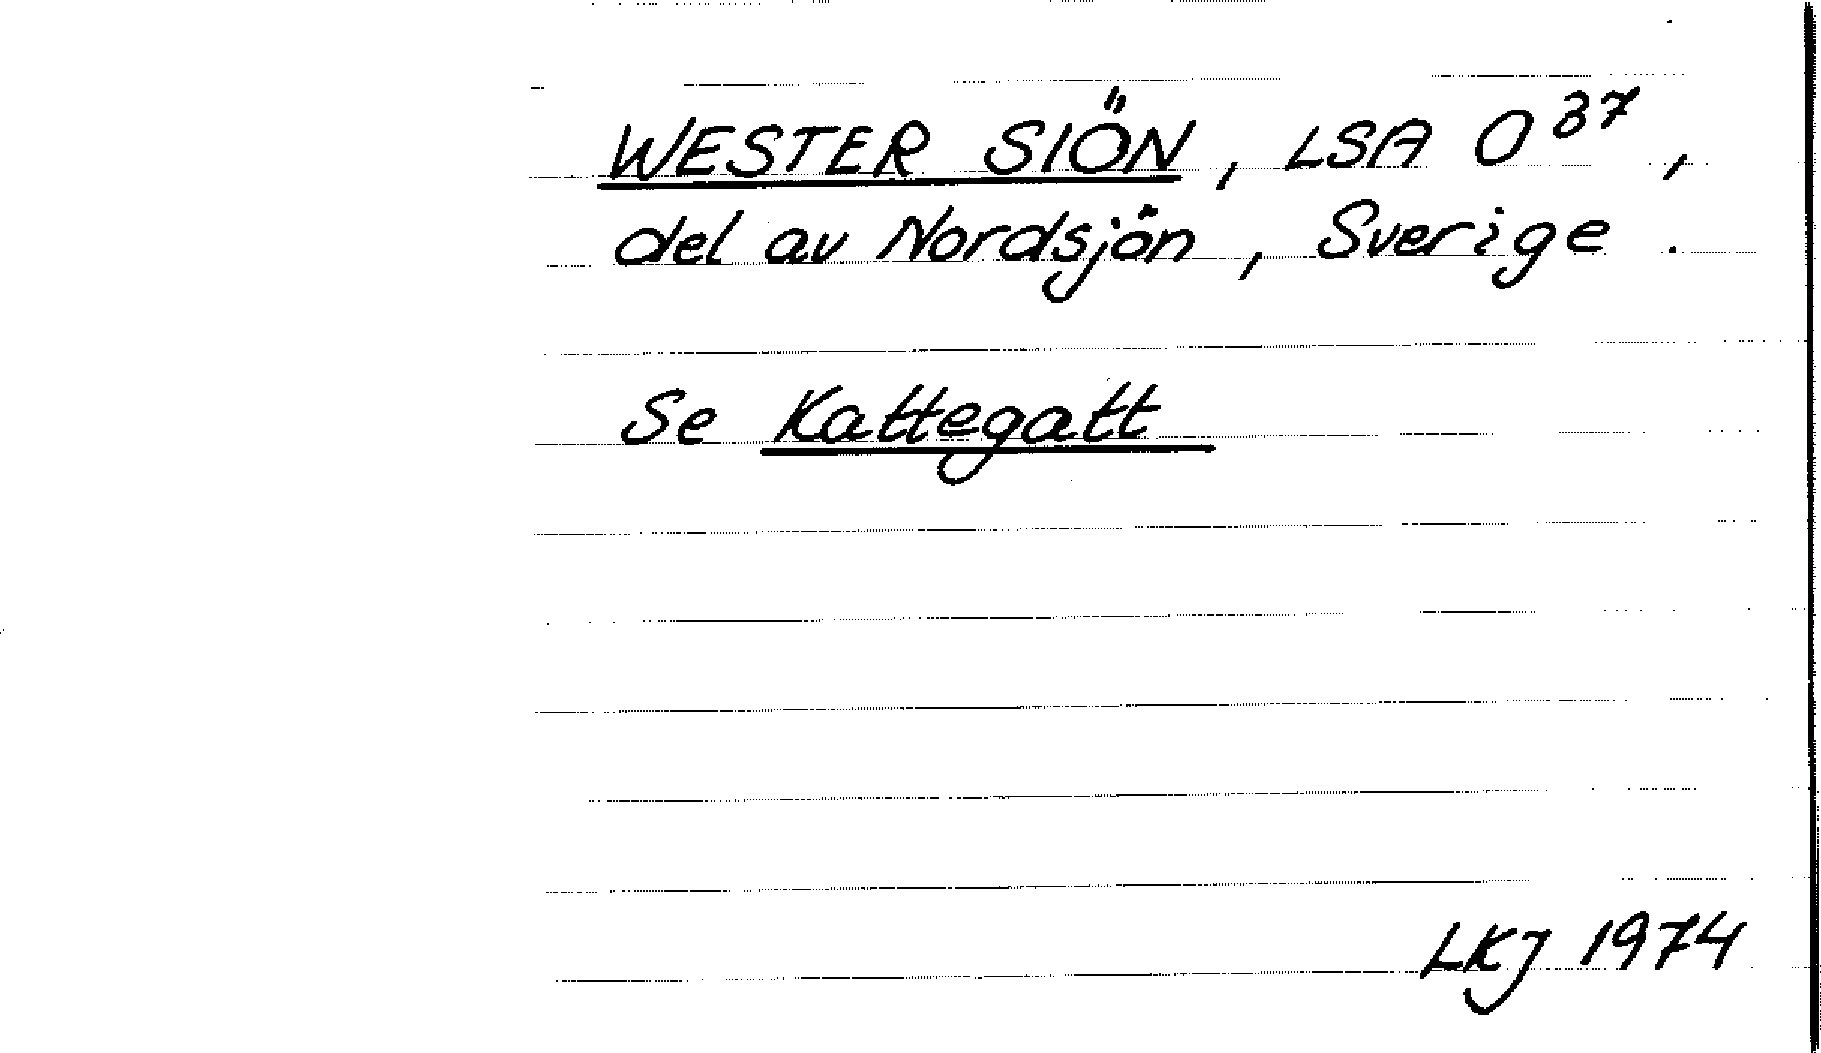 WESTER SIÖN, LSA O 37,
del av Nordsjön, Sverige.
Se Kattegatt
LKJ 1974